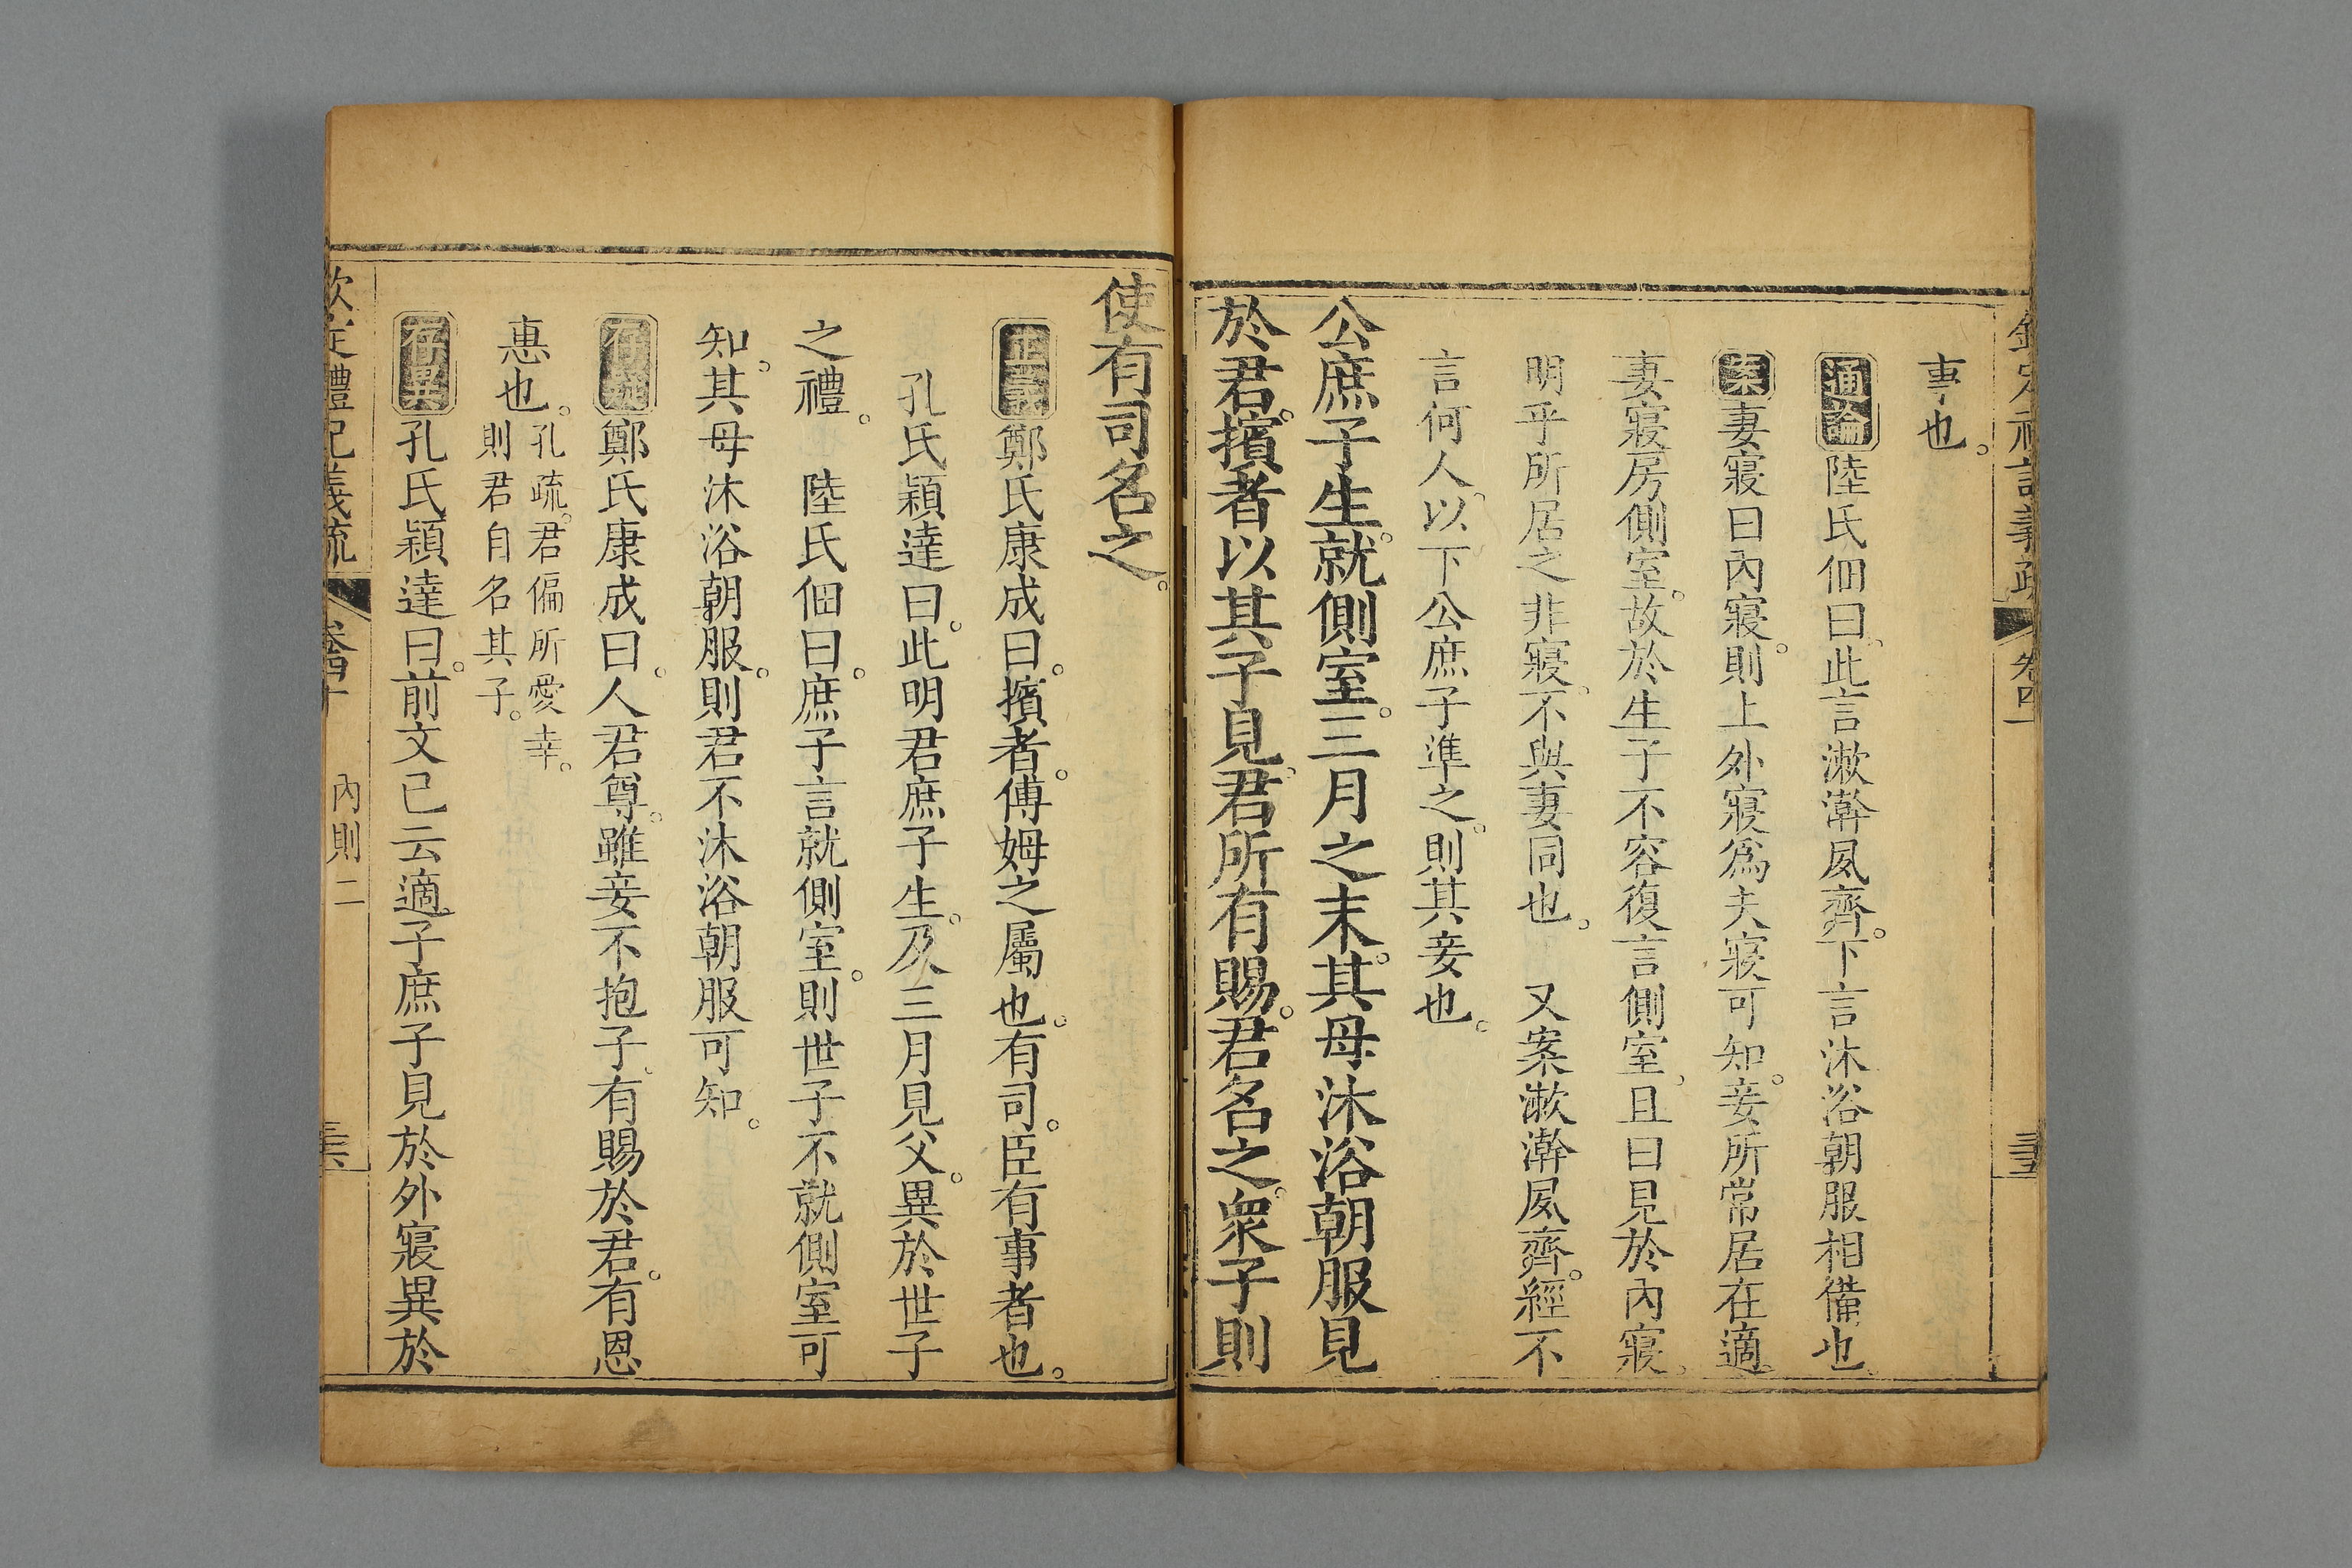 事也。
通論陸氏佃曰。此言漱澣夙齊。下言沐浴朝服相備也。
案妻寢曰內寢。則上外寢爲夫寢可知。妾所常居在適
妻寢房側室。故於生子不容復言側室。且曰見於內寢。
明乎所居之非寢。不與妻同也。 又案漱澣夙齊。經不
言何人。以下公庶子準之。則其妾也。
公庶子生。就側室。三月之末。其母沐浴朝服見
於君。擯者以其子見。君所有賜。君名之。衆子則
使有司名之。
正義鄭氏康成曰。擯者。傅姆之屬也。有司。臣有事者也。
孔氏穎達曰。此明君庶子生。及三月見父。異於世子
之禮。 陸氏佃曰。庶子言就側室。則世子不就側室可
知。其母沐浴朝服。則君不沐浴朝服可知。
存疑鄭氏康成曰。人君尊。雖妾不抱子。有賜於君。有恩
惠也。孔疏。君偏所愛幸。
則君自名其子。
存異孔氏穎達曰。前文已云適子庶子見於外寢異於
欽定禮記義疏 卷四十 內則二